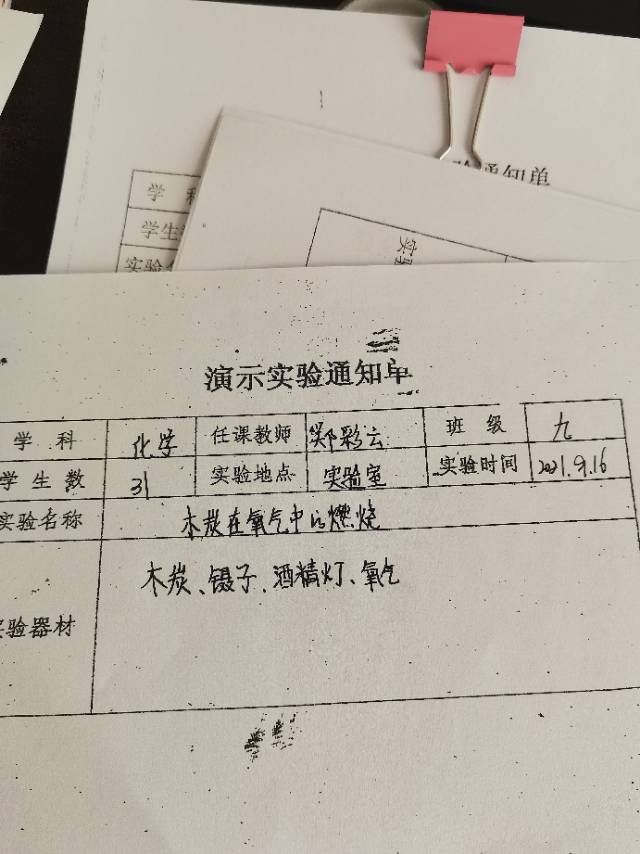 通知单
学
学生
实验
实
验
演示实验通知单
学 科 化学 任课教师 郑彩云 班 级 九
学 生 数 31 实验地点 实验室 实验时间 2021.9.16
实验名称 木炭在氧气中的燃烧
木炭、镊子、酒精灯、氧气
实验器材